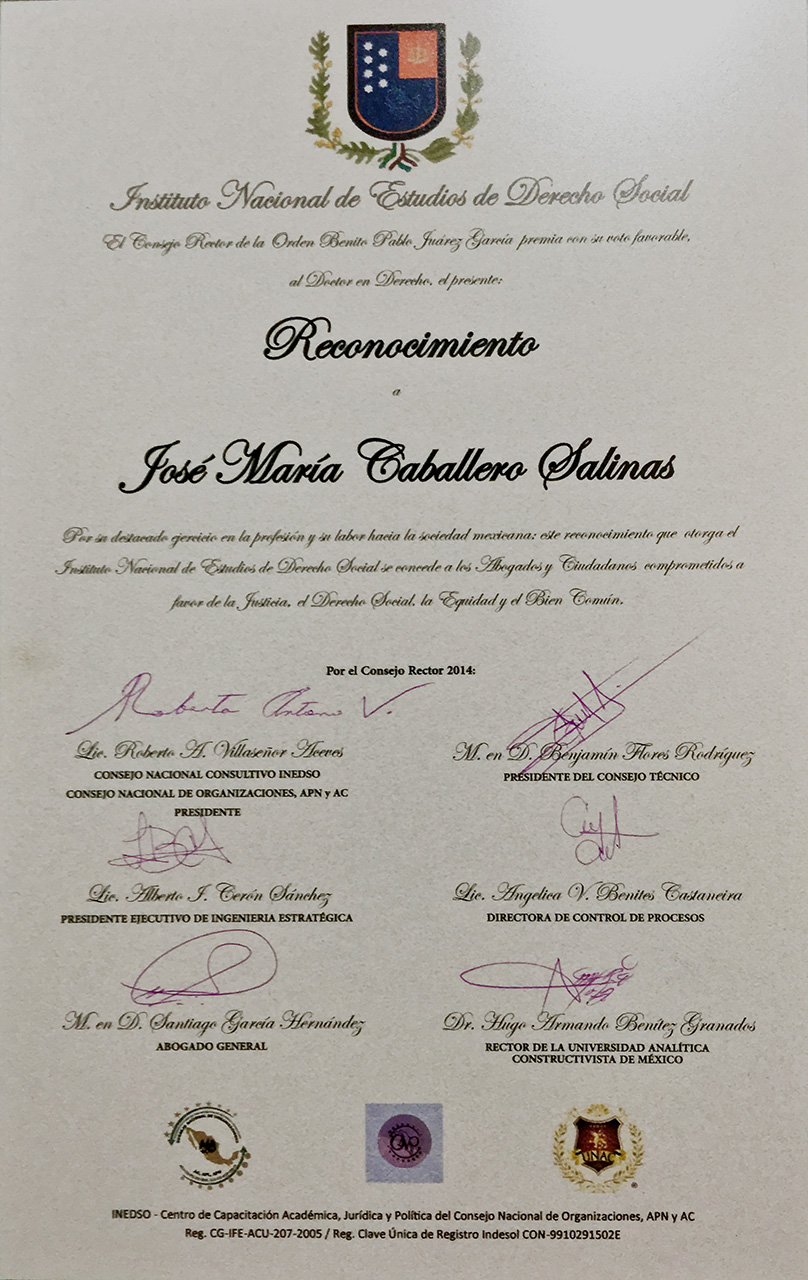 Instituto Nacional de Estudios de Derecho Social
El Consejo Rector de la Orden Benito Pablo Juárez García premia con su voto favorable,
al Doctor en Derecho, el presente:
Reconocimiento
a
José María Caballero Salinas
Por su destacado ejercicio en la profesión y su labor hacia la sociedad mexicana; este reconocimiento que otorga el
Instituto Nacional de Estudios de Derecho Social se concede a los Abogados y Ciudadanos comprometidos a
favor de la Justicia, el Derecho Social, la Equidad y el Bien Común.
Por el Consejo Rector 2014:
Roberto Antonio V.
Lic. Roberto A. Villaseñor Aceves
CONSEJO NACIONAL CONSULTIVO INEDSO
CONSEJO NACIONAL DE ORGANIZACIONES, APN y AC
PRESIDENTE
M. en D. Benjamín Flores Rodríguez
PRESIDENTE DEL CONSEJO TÉCNICO
Lic. Alberto I. Cerón Sánchez
PRESIDENTE EJECUTIVO DE INGENIERIA ESTRATÉGICA
Lic. Angelica V. Benites Castaneira
DIRECTORA DE CONTROL DE PROCESOS
M. en D. Santiago García Hernández
ABOGADO GENERAL
Dr. Hugo Armando Benítez Granados
RECTOR DE LA UNIVERSIDAD ANALÍTICA
CONSTRUCTIVISTA DE MÉXICO
UNAC
INEDSO - Centro de Capacitación Académica, Jurídica y Política del Consejo Nacional de Organizaciones, APN y AC
Reg. CG-IFE-ACU-207-2005 / Reg. Clave Única de Registro Indesol CON-9910291502E